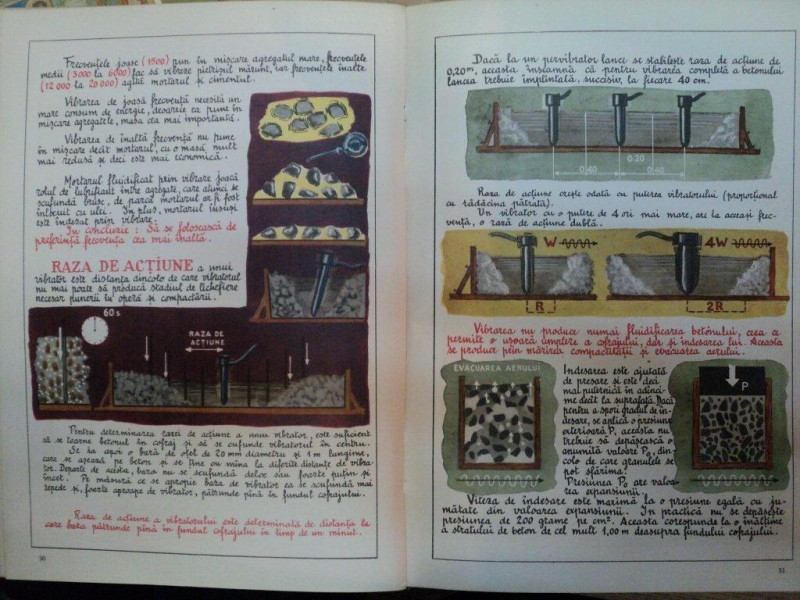 Frecvențele joase (1500) pun în mișcare agregatul mare, frecvențele
medii (3000 la 6000) fac să vibreze pietrișul mărunt, iar frecvențele înalte
(12 000 la 20 000) agită mortarul și cimentul.
Vibrarea de joasă frecvență necesită un
mare consum de energie, deoarece ea pune în
mișcare agregatele, masa cea mai importantă.
Vibrarea de înaltă frecvență nu pune
în mișcare decît mortarul, cu o masă mult
mai redusă și deci este mai economică.
Mortarul fluidificat prin vibrare joacă
rolul de lubrifiant între agregate, care atunci se
scufundă brusc, de parcă mortarul ar fi fost
înlocuit cu ulei. În plus, mortarul însuși
este îndesat prin vibrare.
În concluzie : Să se folosească de
preferință frecvența cea mai înaltă.
RAZA DE ACȚIUNE a unui
vibrator este distanța dincolo de care vibratorul
nu mai poate să producă stadiul de lichefiere
necesar punerii în operă și compactării.
60 s
RAZA DE
ACȚIUNE
Pentru determinarea razei de acțiune a unui vibrator, este suficient
să se toarne betonul în cofraj și să se cufunde vibratorul în centru.
Se ia apoi o bară de oțel de 20 mm diametru și 1 m lungime,
care se așează pe beton și se ține cu mîna la diferite distanțe de vibra-
tor. Departe de acesta, bara nu se scufundă deloc sau foarte puțin și
încet. Pe măsură ce se apropie bara de vibrator ea se scufundă mai
repede și, foarte aproape de vibrator, pătrunde pînă în fundul cofrajului.
Raza de acțiune a vibratorului este determinată de distanța la
care bara pătrunde pînă în fundul cofrajului în timp de un minut.
30
Dacă la un pervibrator lance se stabilește raza de acțiune de
0,20 m, aceasta înseamnă că pentru vibrarea completă a betonului
lancea trebuie împlîntată, succesiv, la fiecare 40 cm.
0.20
0.40
0.40
Raza de acțiune crește odată cu puterea vibratorului (proporțional
cu rădăcina pătrată).
Un vibrator cu o putere de 4 ori mai mare, are la aceași frec-
vență, o rază de acțiune dublă.
W
4W
R
2R
Vibrarea nu produce numai fluidificarea betonului, ceea ce
permite o ușoară umplere a cofrajului, dar și îndesarea lui. Aceasta
se produce prin mărirea compactității și evacuarea aerului.
EVACUAREA AERULUI
Îndesarea este ajutată
de presare și este deci
mai puternică în adînci-
me decît la suprafață. Dacă
pentru a spori gradul de în-
desare, se aplică o presiune
exterioară P, aceasta nu
trebuie să depășească o
anumită valoare P₀, din-
colo de care granulele se
pot sfărîma!
Presiunea P₀ are valoa-
rea expansiunii.
P
Viteza de îndesare este maximă la o presiune egală cu ju-
mătate din valoarea expansiunii. În practică nu se depășește
presiunea de 200 grame pe cm². Aceasta corespunde la o înălțime
a stratului de beton de cel mult 1,00 m deasupra fundului cofrajului.
31